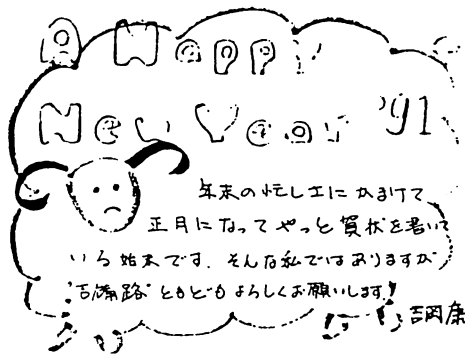 A Happy
New Year '91
年末の忙しさにかまけて、
正月になってやっと賀状を書いて
いる始末です。そんな私ではありますが
路ともどもよろしくお願いします!
吉岡康